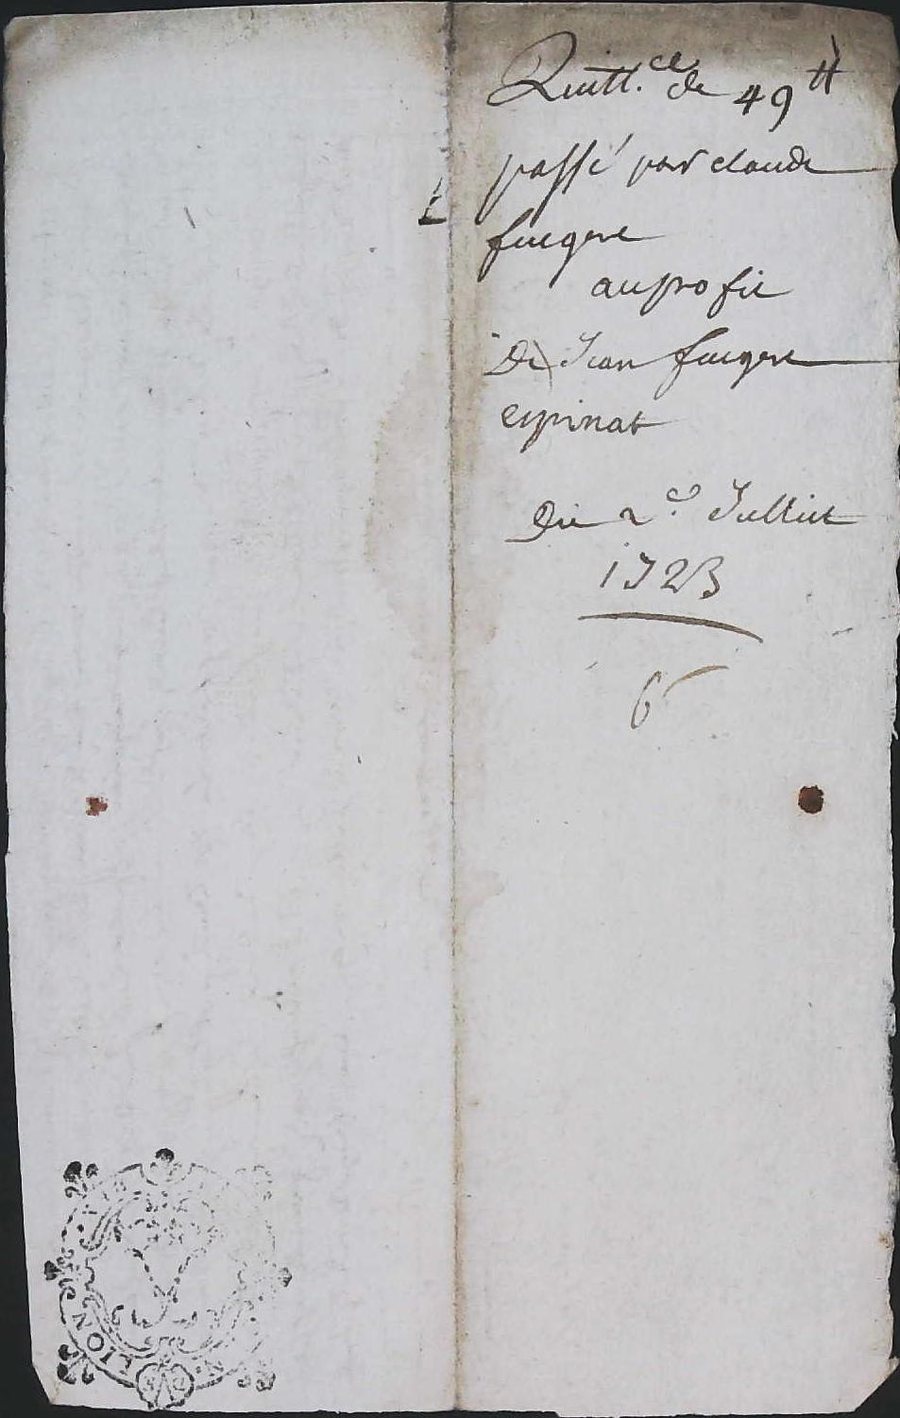 Quitt.ce de 49 tt
passé par claude
faugere
au profit
De Jean faugere
espinat
Du 2e. Juilliet
1723
6
LION